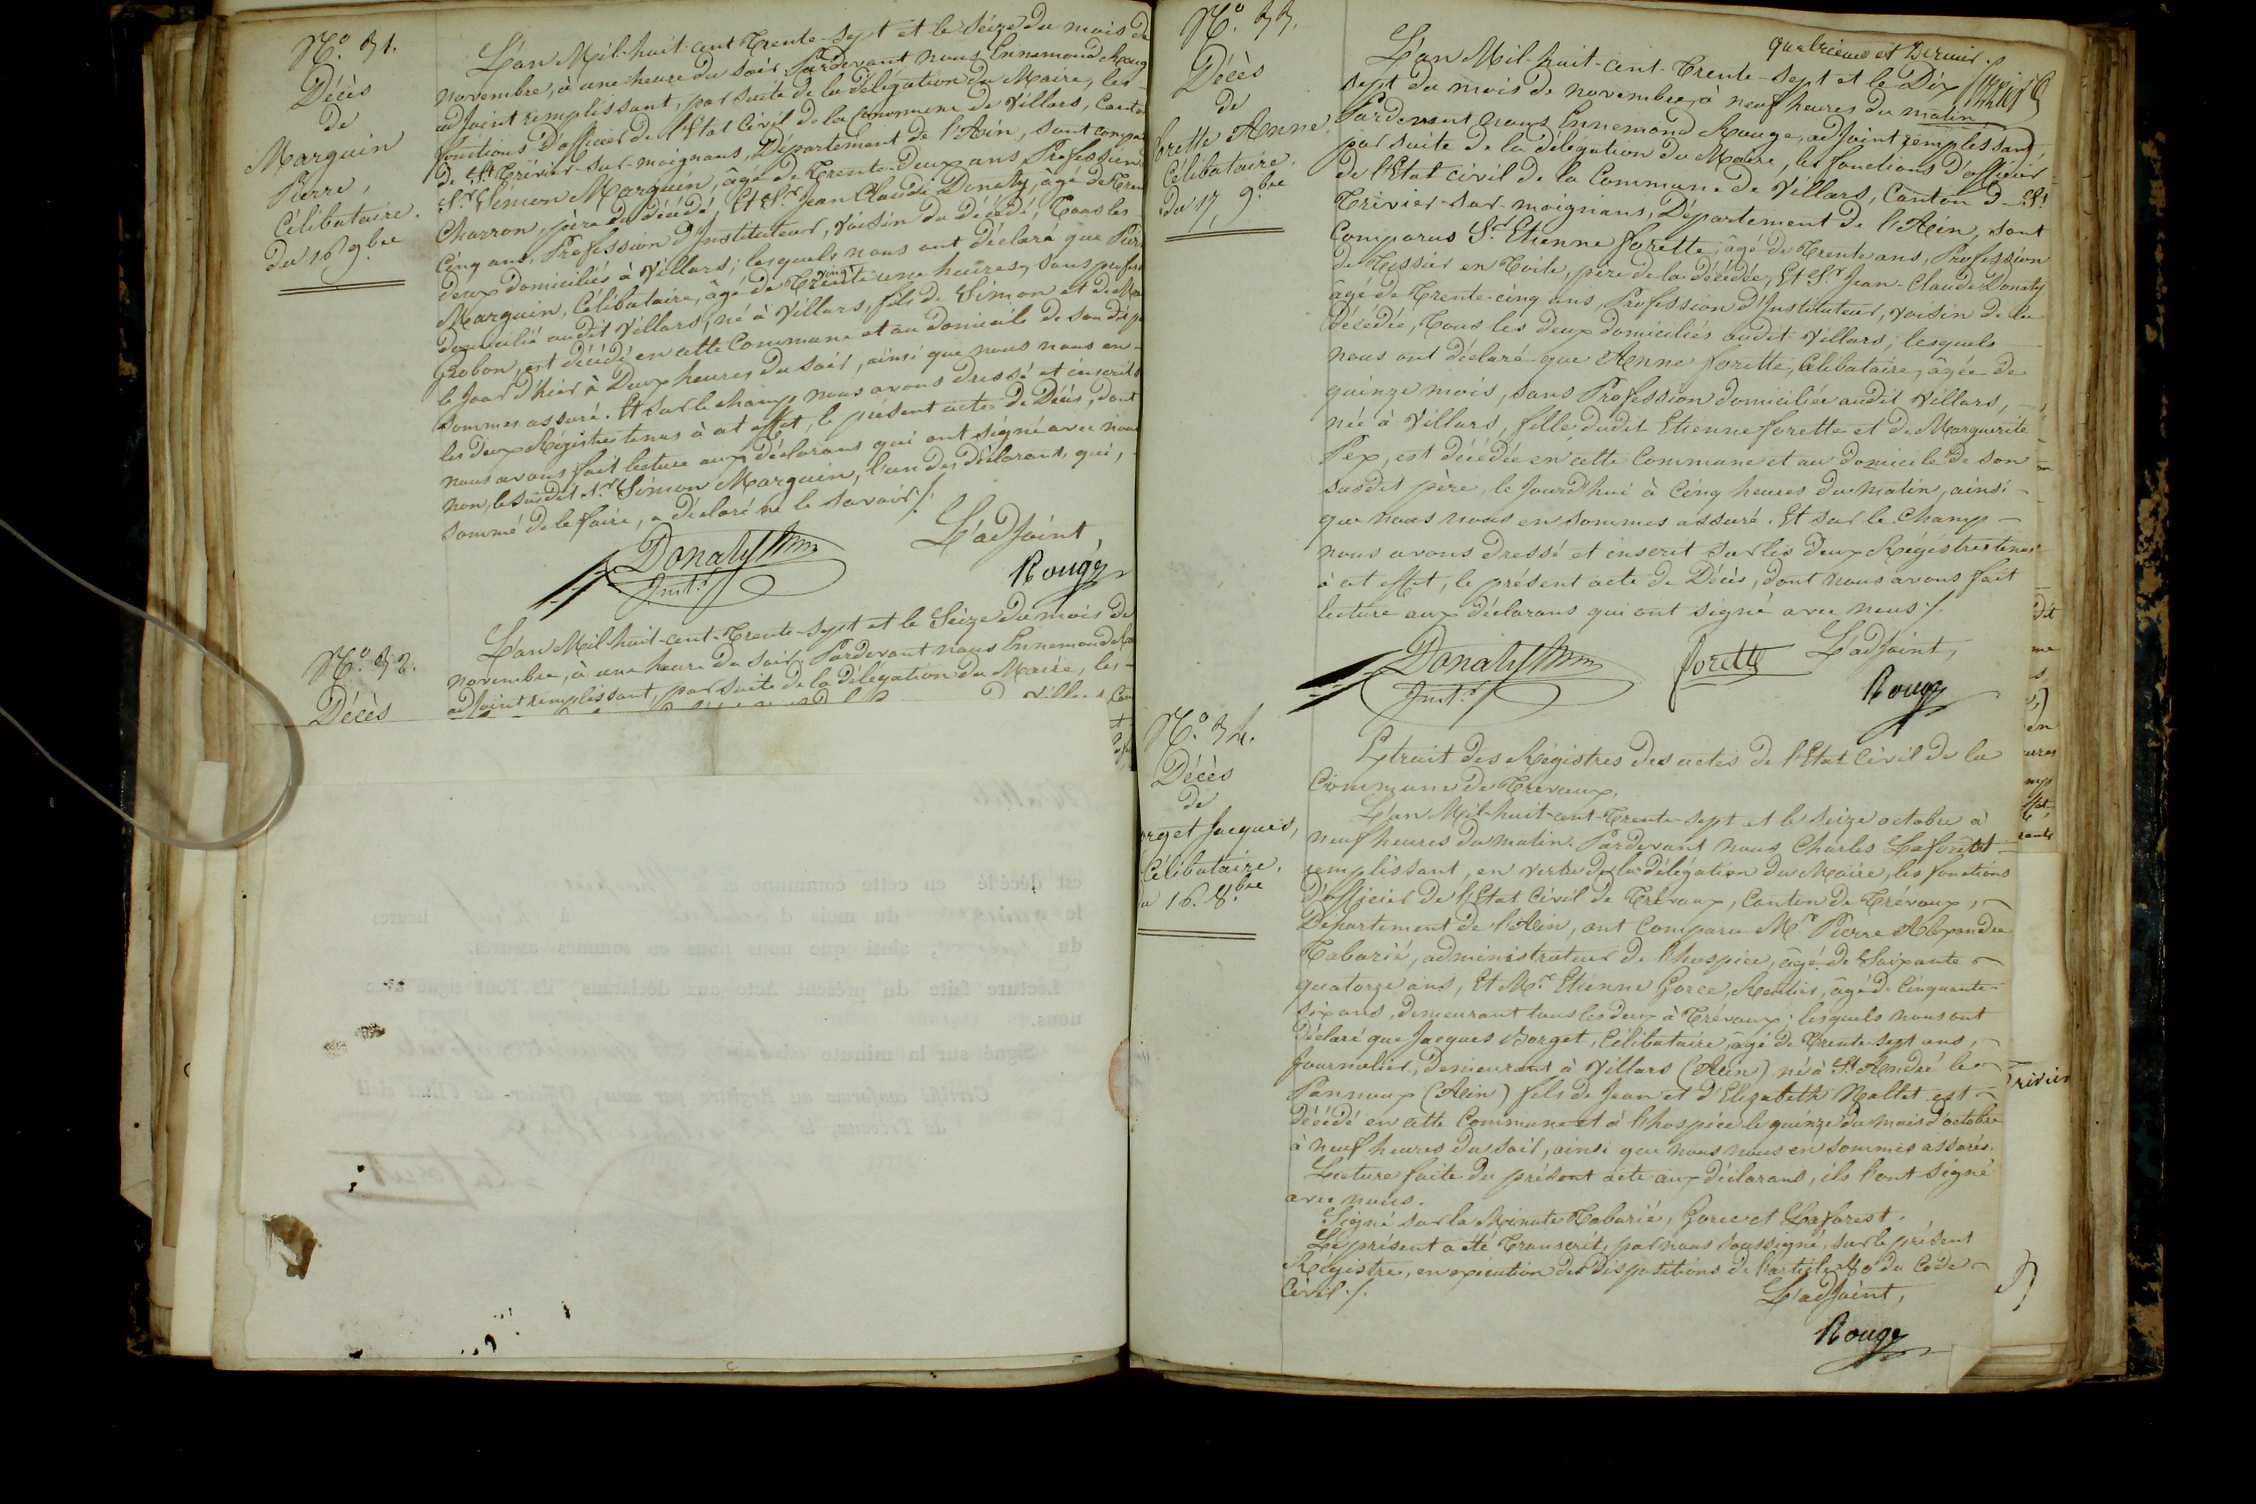 N.o 31.
Décès
de
Marguin
Pierre,
Célibataire.
du 16 9.bre
L'an Mil-huit-cent-Trente-sept et le Seize du mois de
novembre, à une heure du soir, Pardevant nous Ennemond Roug
adjoint remplissant, par suite de la délégation du Maire, les
fonctions d'officier de l'Etat Civil de la commune de Villars, Canto
de St. Trivier-sur-moignans, Département de l'Ain, sont compa
S.r Simon Marguin, âgé de Trente-Deux ans, Profession
Charron, père du décédé, Et S.r Jean Claude Donaty, âgé de Tren
Cinq ans, Profession d'Instituteur, voisin du décédé, Tous les
deux domiciliés à Villars; lesquels nous ont déclaré que Pier
Marguin, Célibataire, âgé de vingt une heures, sans profes
domicilié audit Villars, né à Villars, fils de Simon et de Ma
Robon, est décédé en cette Commune et au domicile de son dit p
le jour d'hier à Deux heures du soir, ainsi que nous nous en
sommes assuré. Et sur le champ nous avons dressé et inscrit s
les deux Régistres tenus à cet effet, le présent acte de Décès, dont
nous avons fait lecture aux déclarans qui ont signé avec nous
non, le susdit S.r Simon Marguin, l'un des déclarans, qui,
sommé de le faire, a déclaré ne le savoir ./.
Donaty
Inst.r
L'adjoint,
Rouge
N.o 32.
Décès
L'an Mil-huit-cent-Trente-sept et le Seize du mois de
novembre, à une heure du soir, Pardevant nous Ennemond Ro
adjoint remplissant, par suite de la délégation du Maire, les
N.o 33.
Décès
de
forette Anne,
Célibataire.
du 17 9.bre
quatrième et Dernier
L'an Mil-huit-cent-Trente-sept et le Dix
sept du mois de novembre, à neuf heures du matin,
Pardevant nous Ennemond Rouge, adjoint remplissant
par suite de la délégation du Maire, les fonctions d'officier
de l'Etat civil de la Commune de Villars, Canton de St.
Trivier-sur-moignans, Département de l'Ain, sont
Comparus S.r Etienne forette, âgé de Trente ans, Profession
de Tissier en Toile, père de la décédée, Et S.r Jean-Claude Donaty
âgé de Trente-cinq ans, Profession d'Instituteur, voisin de la
Décédée, Tous les deux domiciliés audit Villars; lesquels
nous ont déclaré que Anne forette, Célibataire, âgée de
quinze mois, sans Profession domiciliée audit Villars,
née à Villars, fille dudit Etienne forette et de Marguerite
Pex, est décédée en cette Commune et au domicile de son
susdit père, le jourd'hui à Cinq heures du matin, ainsi
que nous nous en sommes assuré. Et sur le champ
nous avons dressé et inscrit sur les deux Régistres tenus
à cet effet, le présent acte de Décès, dont nous avons fait
lecture aux déclarans qui ont signé avec nous ./.
Donaty
Inst.r
forette
L'adjoint,
Rouge
N.o 34.
Décès
de
orget Jacques,
Célibataire,
u 16. 8.bre
Extrait des Régistres des actes de l'Etat Civil de la
Commune de Trévoux.
L'an Mil-huit-cent-Trente-sept et le seize octobre à
neuf heures du matin. Pardevant nous Charles Laforest
remplissant, en vertu de la délégation du Maire, les fonctions
d'officier de l'Etat Civil de Trévoux, Canton de Trévoux,
Département de l'Ain, ont Comparu M.r Pierre Alexandre
Tabarié, administrateur de l'hospice, âgé de Soixante
quatorze ans, Et M.r Etienne Gorce, Rentier, âgé de Cinquante
six ans, demeurant tous les deux à Trévoux; lesquels nous ont
déclaré que Jacques Borget, Célibataire, âgé de Trente-sept ans,
Journalier, demeurant à Villars (Ain) né à St. André le
Pannoux (Ain) fils de Jean et d'Elizabeth Maltet est
décédé en cette Commune et à l'hospice le quinze du mois d'octobre
à neuf heures du soir, ainsi que nous nous en sommes assurés.
Lecture faite du présent acte aux déclarans, ils l'ont signé
avec nous.
Signé sur la Minute Tabarié, Gorce et Laforest.
Le présent a été Transcrit, par nous soussigné, sur le présent
Régistre, en exécution des dispositions de l'article 80 du Code
Civil ./.
L'adjoint,
Rouge